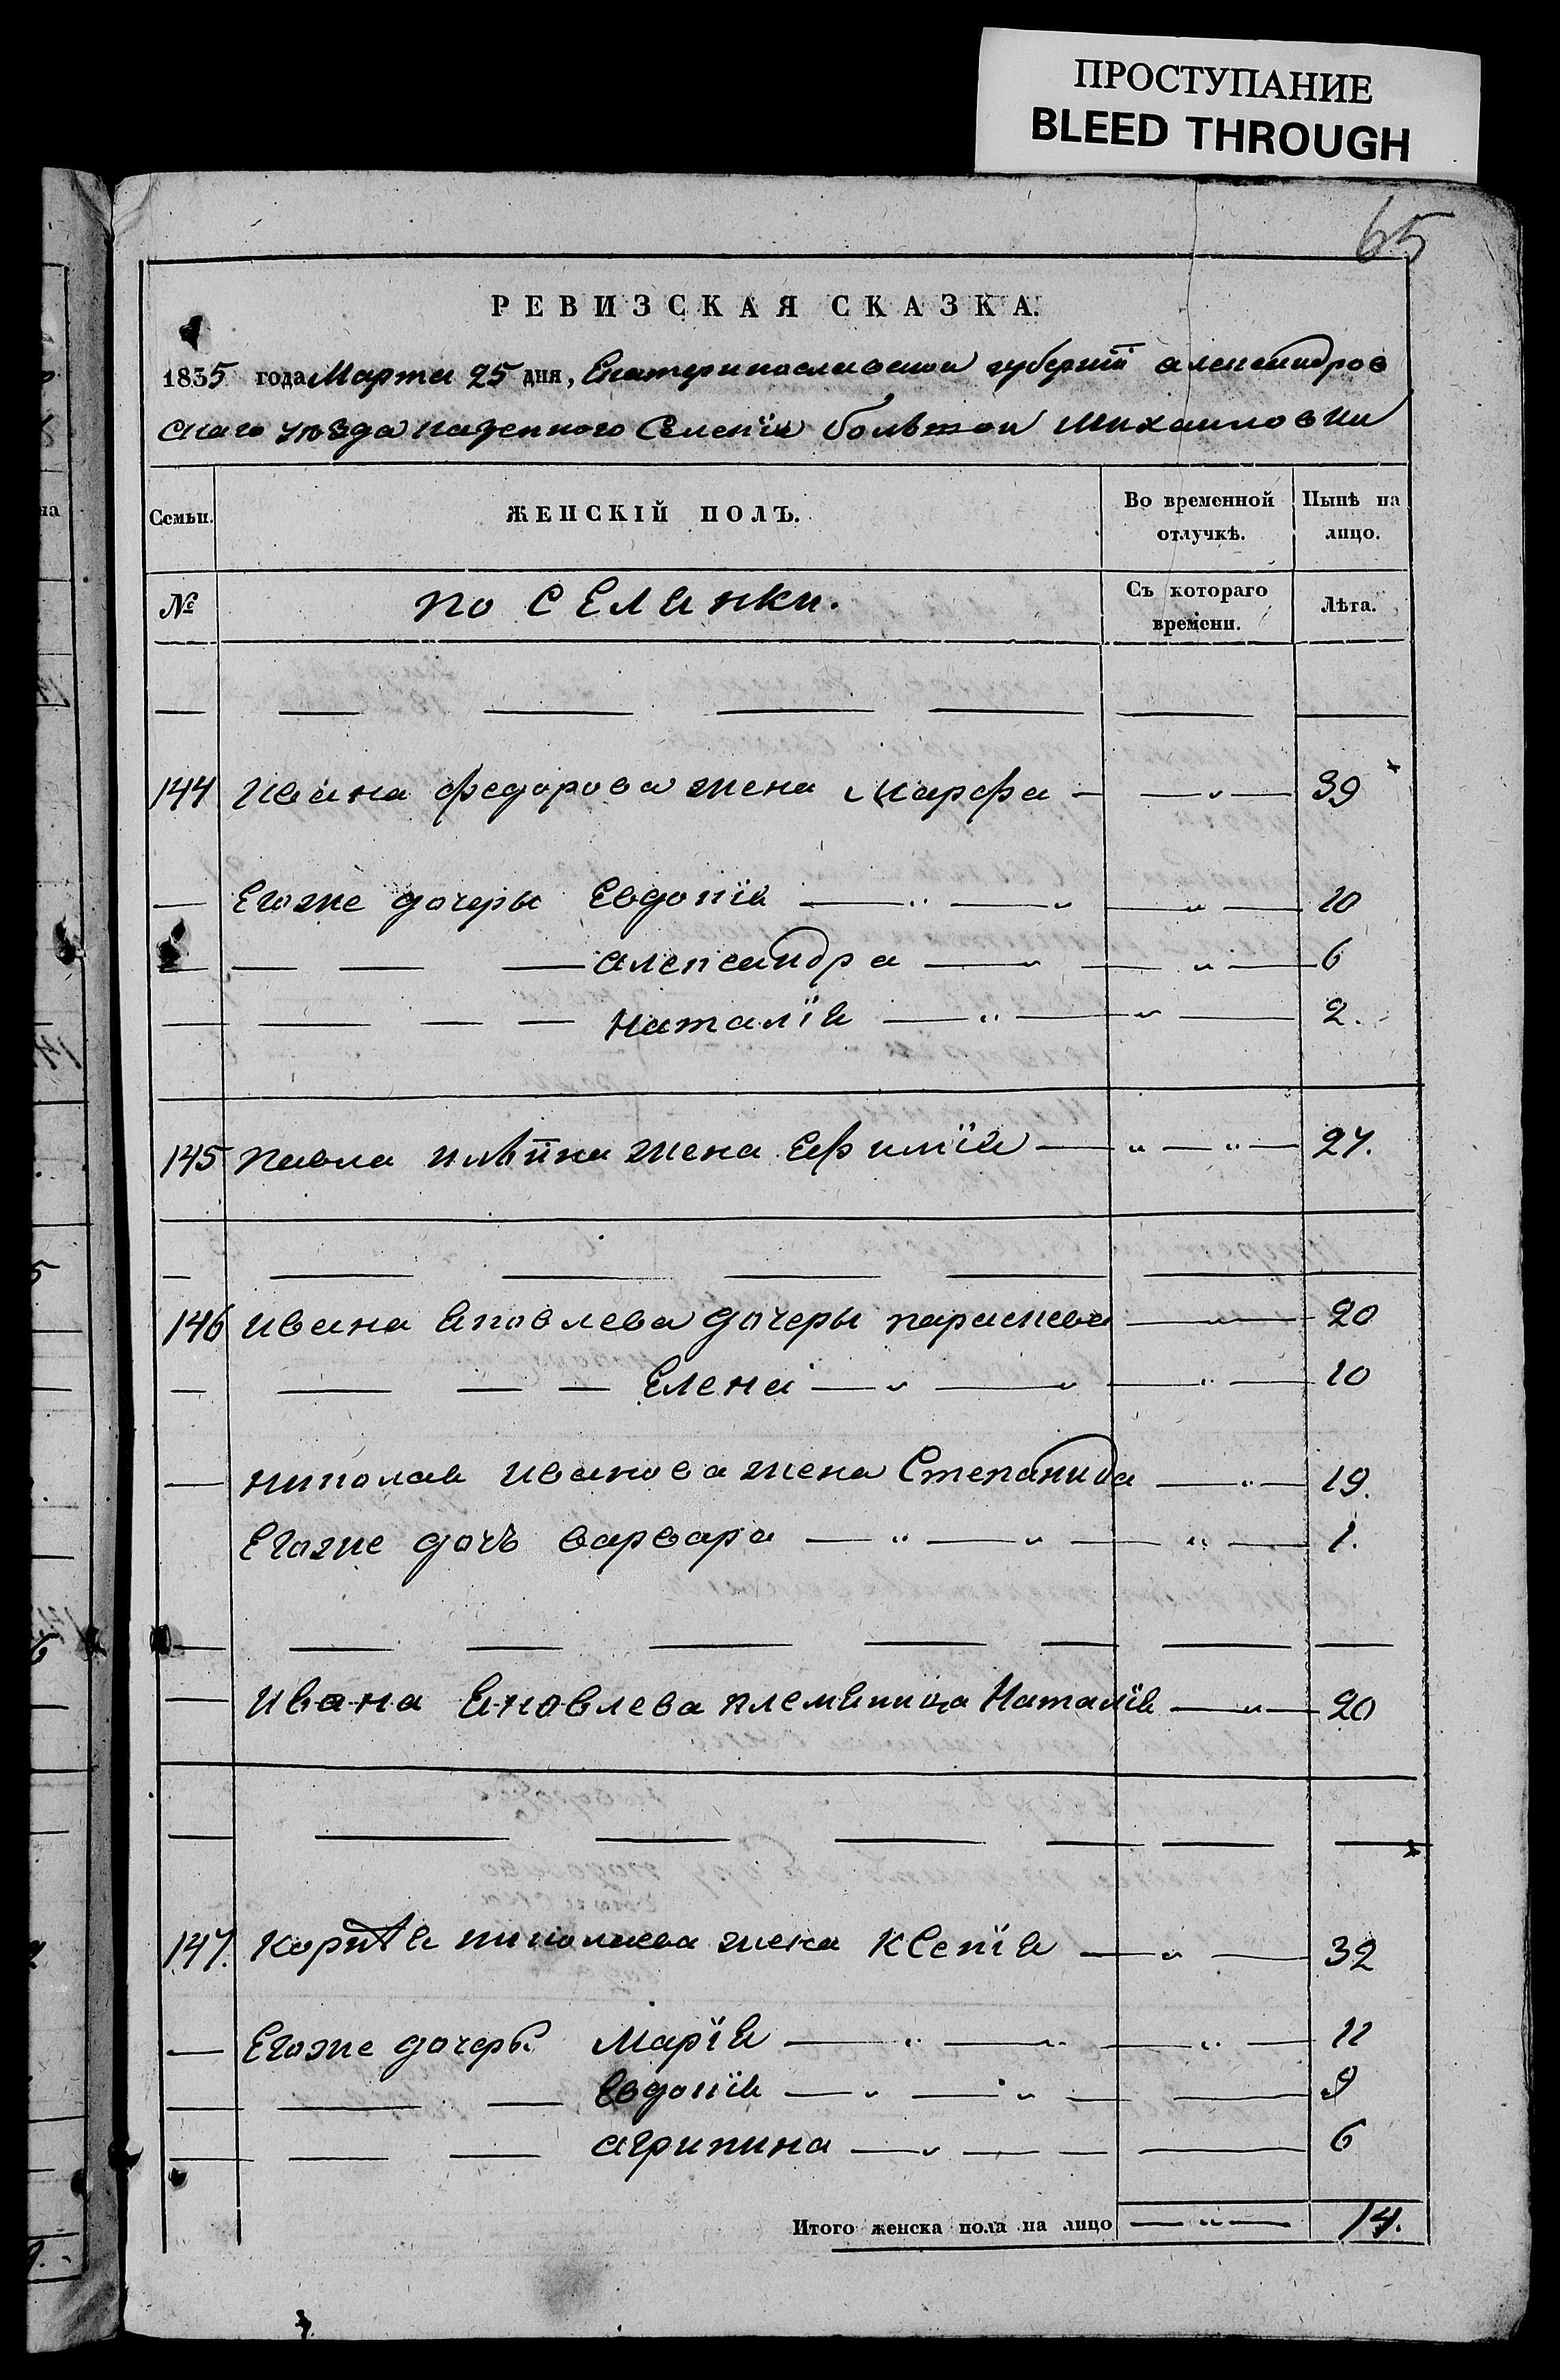 ПРОСТУПАНИЕ
BLEED THROUGH
65
РЕВИЗСКАЯ СКАЗКА.
1835 года Марта 25 дня, Екатеринославской губернїи александров
скаго уѣзда казенного Селенїя большой Михаиловки
Семьи. ЖЕНСКІЙ ПОЛЪ. Во временной отлучкѣ. Нынѣ на лицо.
№ поселянки. Съ котораго времени. Лѣта.
144 Ивана федорова жена Марфа — „ — 39
— Егоже дочеры Евдокїя — „ — „ — „ — 10
— — — — александра — „ — „ — 6
— — — — Наталїя — „ — „ — 2.
145 павла жена Ефимїя — „ — „ — 27.
146 ивана Яковлева дочеры параскева — „ — 20
— — — — Елена — „ — „ — „ — 10
— николая иванова жена Степанида — „ — 19.
Егоже дочъ варвара — „ — „ — „ — 1.
— ивана Яковлева племяница Наталїя — „ — 20
147. корнѣя николаева жена Ксенїя — „ — 32
— Егоже дочеры Марїя — „ — „ — „ — 11
— — — Евдокїя — „ — „ — — 9
— — — агрипина — „ — — — 6
Итого женска пола на лицо — „ — 14.